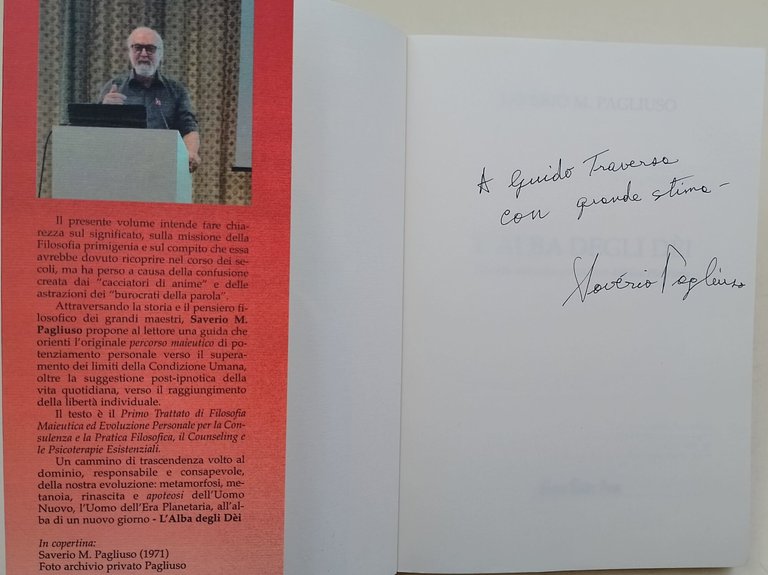 Il presente volume intende fare chia-
rezza sul significato, sulla missione della
Filosofia primigenia e sul compito che essa
avrebbe dovuto ricoprire nel corso dei se-
coli, ma ha perso a causa della confusione
creata dai "cacciatori di anime" e delle
astrazioni dei "burocrati della parola".
Attraversando la storia e il pensiero fi-
losofico dei grandi maestri, Saverio M.
Pagliuso propone al lettore una guida che
orienti l'originale percorso maieutico di po-
tenziamento personale verso il supera-
mento dei limiti della Condizione Umana,
oltre la suggestione post-ipnotica della
vita quotidiana, verso il raggiungimento
della libertà individuale.
Il testo è il Primo Trattato di Filosofia
Maieutica ed Evoluzione Personale per la Con-
sulenza e la Pratica Filosofica, il Counseling e
le Psicoterapie Esistenziali.
Un cammino di trascendenza volto al
dominio, responsabile e consapevole,
della nostra evoluzione: metamorfosi, me-
tanoia, rinascita e apoteosi dell'Uomo
Nuovo, l'Uomo dell'Era Planetaria, all'al-
ba di un nuovo giorno - L'Alba degli Dèi
In copertina:
Saverio M. Pagliuso (1971)
Foto archivio privato Pagliuso
A Guido Traversa
con grande stima -
Saverio Pagliuso
SAVERIO M. PAGLIUSO
L'ALBA DEGLI DÈI